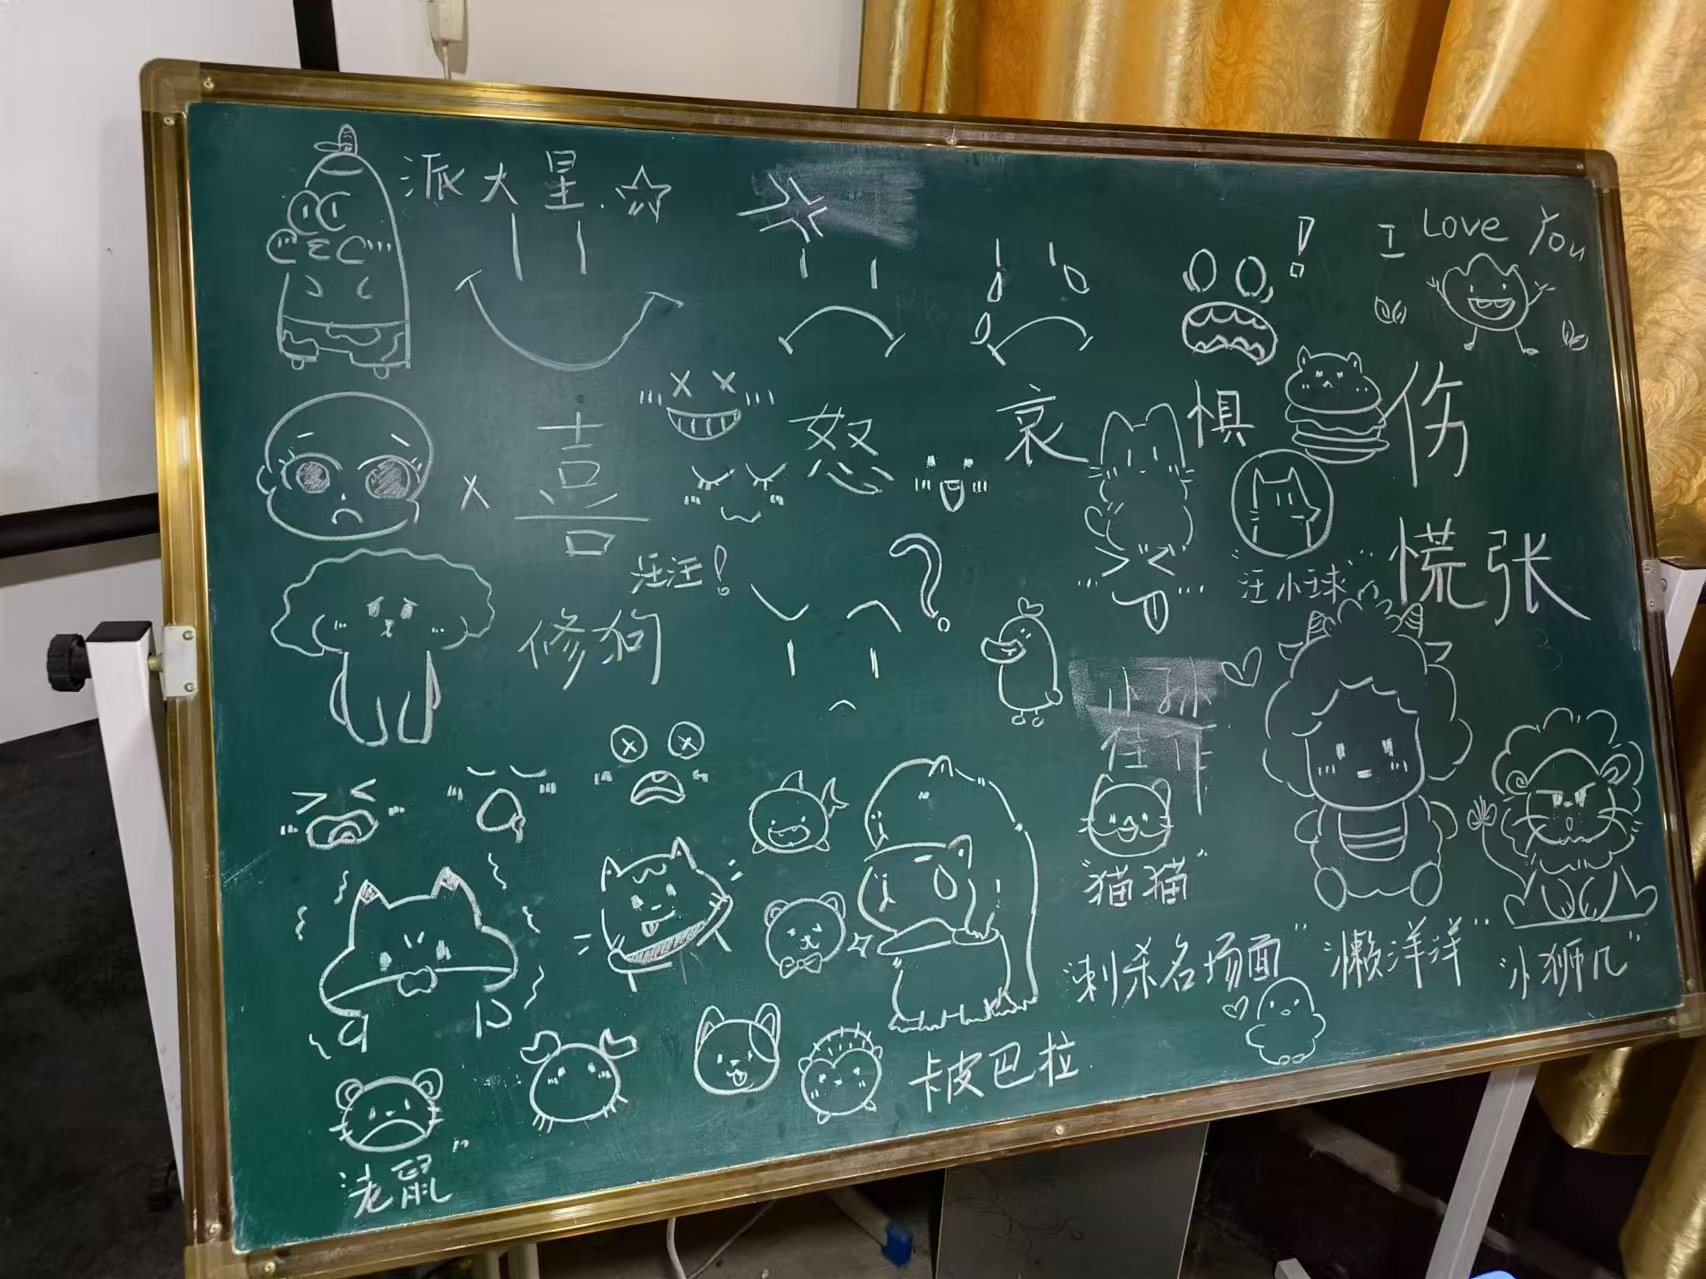 派大星
I Love You
喜
怒
哀
惧
伤
汪汪!
?
"汪小球"
慌张
修狗
"猫猫"
刺杀名场面
"懒洋洋"
"小狮几"
卡皮巴拉
老鼠"